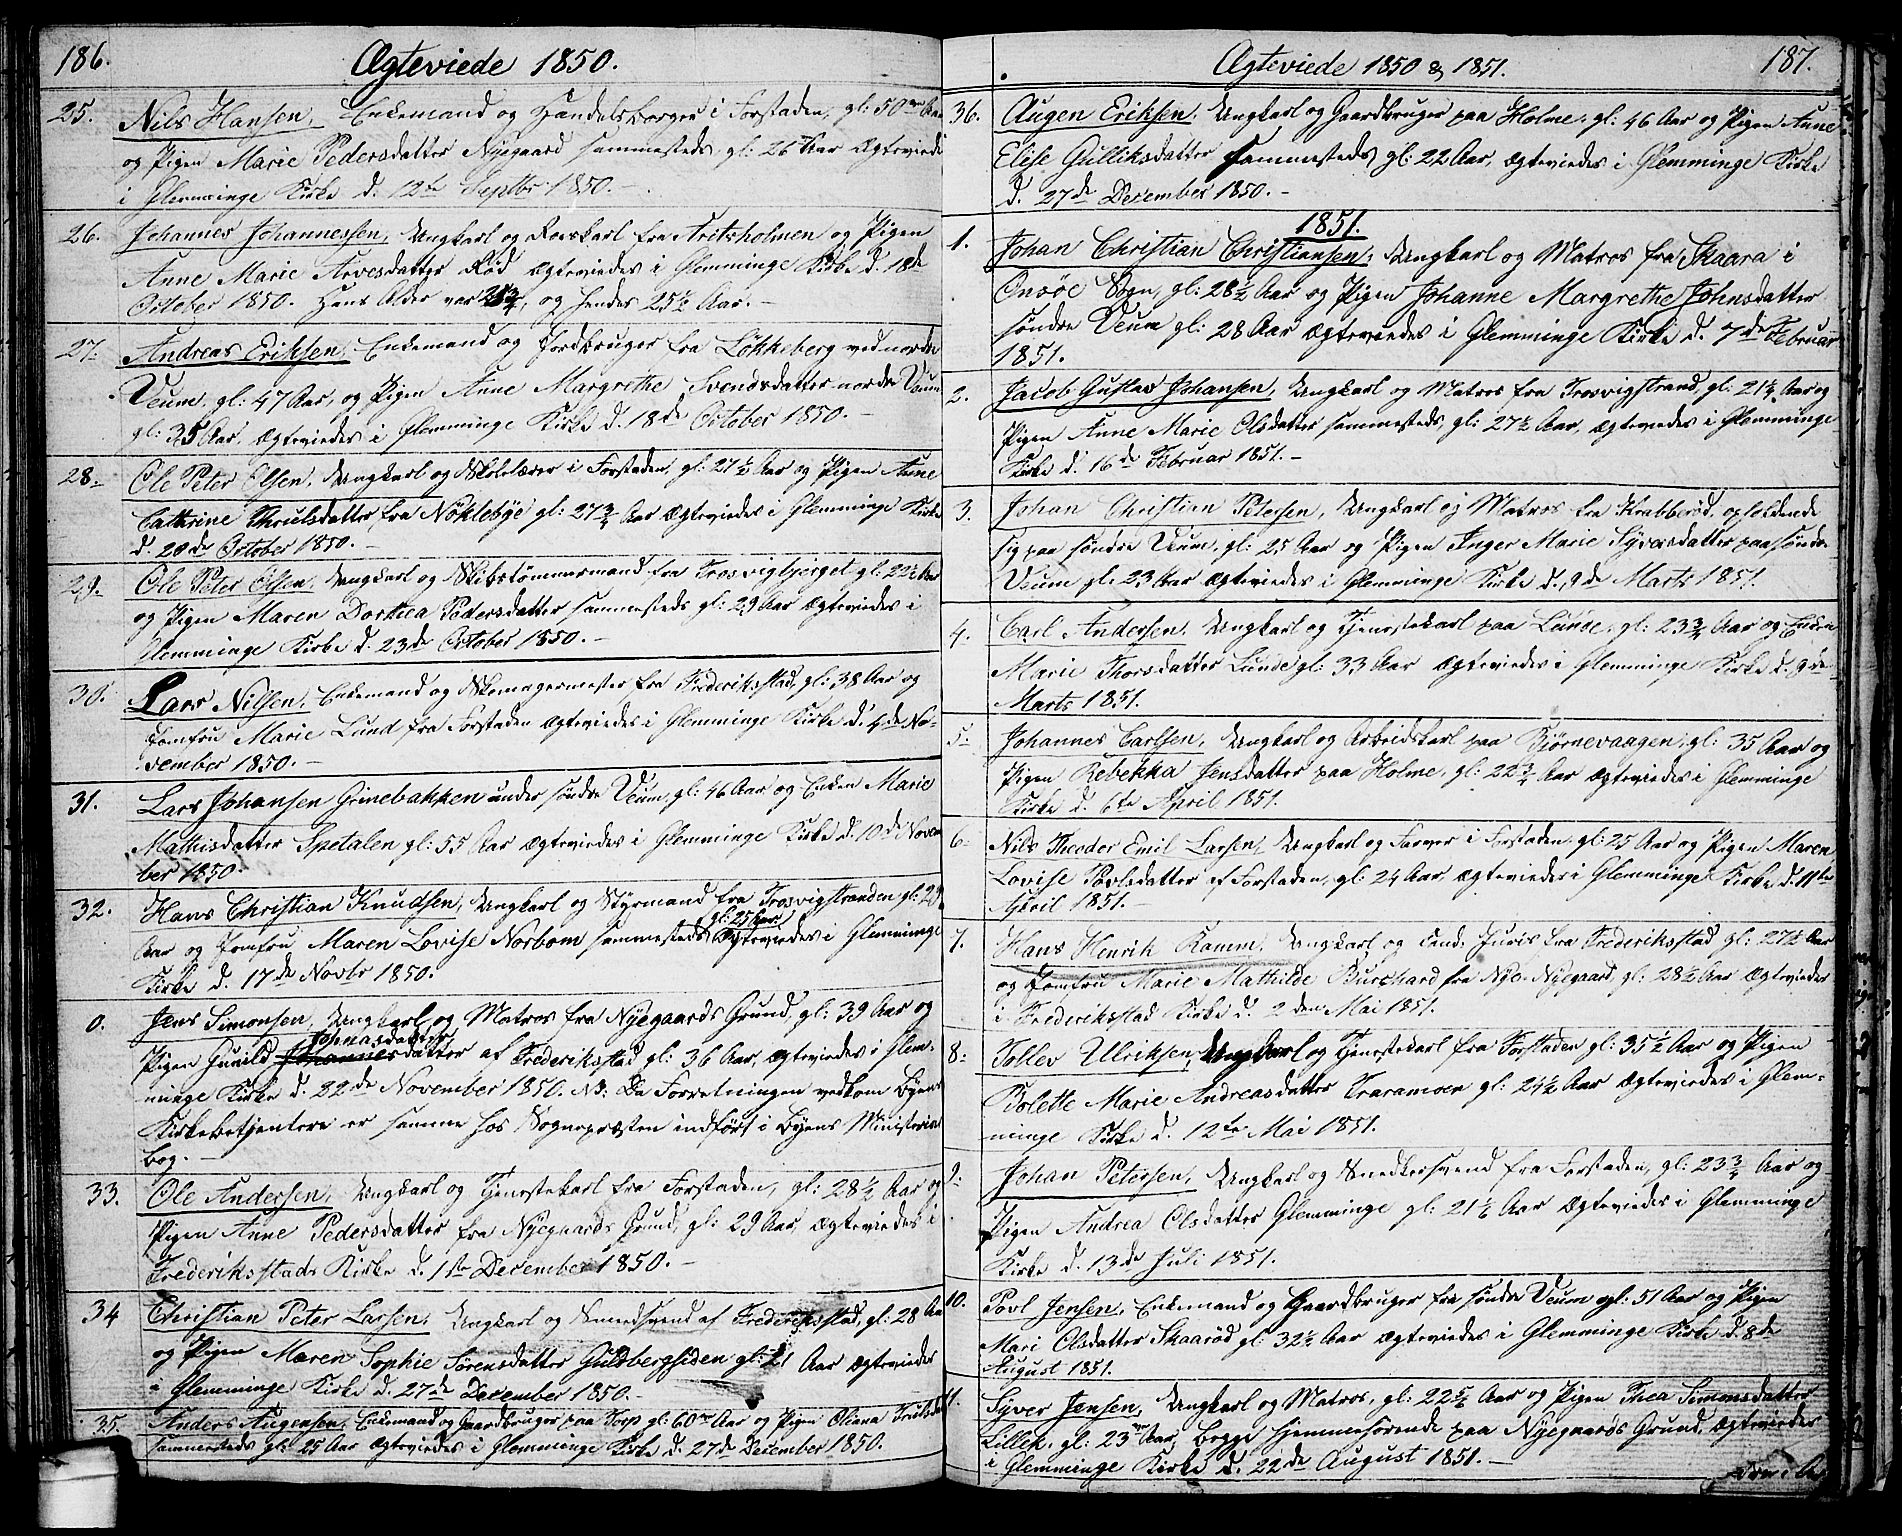 186.
Ægteviede 1850.
25. Nils Hansen, Enkemand og Handelsborger i Forstaden, gl: 50 Aar
og Pigen Marie Pedersdatter Nyegaard sammesteds, gl: 26 Aar Ægteviede
i Glemminge Kirke d. 12te Septbr 1850. –
26. Johannes Johannessen, Ungkarl og Roerskarl fra Aritsholmen og Pigen
Anne Marie Arvesdatter Röd Ægteviedes i Glemminge Kirke d. 18de
October 1850. Hans Alder var og hendes 25½ Aar. –
27. Andreas Eriksen, Enkemand og Jordbruger fra Lökkeberg ved nordre
Veum, gl: 47 Aar, og Pigen Anne Margrethe Svendsdatter nordre Veum
gl: 35 Aar, Ægteviedes i Glemminge Kirke d. 18de October 1850. –
28. Ole Peter Olsen, Ungkarl og Skolelærer i Forstaden, gl: 27½ Aar og Pigen Anne
Cathrine Thrulsdatter fra Nöklebye gl: 27¾ Aar Ægteviedes i Glemminge Kirke
d. 20de October 1850. –
29. Ole Peter Olsen, Ungkarl og Skibstömmermand fra Trosvigbjerget gl: 22½ Aar
og Pigen Maren Dorthea Pedersdatter sammesteds gl: 29 Aar Ægteviedes i
Glemminge Kirke d. 23de October 1850. –
30. Lars Nilsen, Enkemand og Skomagermester fra Frederiksstad, gl: 38 Aar og
Jomfru Marie Lund fra Forstaden Ægteviedes i Glemminge Kirke d. 4de No-
vember 1850. –
31. Lars Johansen Grinebakken under söndre Veum, gl: 46 Aar og Enken Marie
Mathisdatter Spetalen gl: 55 Aar Ægteviedes i Glemminge Kirke d. 10de Novem
ber 1850.
32. Hans Christian Knudsen, Ungkarl og Styrmand fra Trosvigstranden gl: 29
gl: 25 Aar
Aar og Jomfru Maren Lovise Norbom sammesteds Ægteviedes i Glemminge
Kirke d. 17de Novbr 1850.
0. Jens Simonsen, Ungkarl og Matros fra Nyegaards Grund, gl: 39 Aar og
Jonasdatter
Pigen Gunild Johannesdatter af Frederikstad gl: 36 Aar, Ægteviedes i Glem-
minge Kirke d. 22de November 1850. NB: Da Forretningen vedkom Byens
Kirkebetjentere er samme hos Sognepræsten indfört i Byens Ministerial
bog. –
33. Ole Andersen, Ungkarl og Tjenestekarl fra Forstaden, gl: 28½ Aar og
Pigen Anne Pedersdatter fra Nyegaards Grund, gl: 29 Aar, Ægteviedes i
Frederiksstads Kirke d. 1ste December 1850. –
34 Christian Peter Larsen, Ungkarl og Smedsvend af Frederiksstad, gl: 28 Aar
og Pigen Maren Sophie Sörensdatter Guldbergsiden gl: 21 Aar Ægteviedes
i Glemminge Kirke d. 27de December 1850. –
35. Anders Augensen, Enkemand og Gaardbruger paa Torp gl: 60 Aar og Pigen Oliana Trulsdatter
sammesteds gl: 25 Aar Ægteviedes i Glemminge Kirke d. 27de December 1850.
Ægteviede 1850 & 1851.
187.
36. Augen Eriksen, Ungkarl og Gaardbruger paa Holme, gl: 46 Aar og Pigen Anne
Elise Gulliksdatter sammesteds, gl: 22 Aar, Ægteviedes i Glemminge Kirke
d. 27de December 1850. –
1851.
1. Johan Christian Christiansen, Ungkarl og Matros fra Skaara i
Onsöe Sogn, gl: 28½ Aar og Pigen Johanne Margrethe Johnsdatter
söndre Veum gl: 28 Aar Ægteviedes i Glemminge Kirke d. 7de Februar
1851.
2. Jacob Gustav Johansen, Ungkarl og Matros fra Trosvigstrand, gl: 21½ Aar og
Pigen Anne Marie Olsdatter sammesteds, gl: 27½ Aar, Ægteviedes i Glemminge
Kirke d. 16de Februar 1851. –
3. Johan Christian Petersen, Ungkarl og Matros fra Krabberöd, opholdende
sig paa söndre Veum, gl: 25 Aar og Pigen Inger Marie Syversdatter paa söndre
Veum gl: 23 Aar Ægteviedes i Glemminge Kirke d. 9de Marts 1851.
4. Carl Andersen, Ungkarl og Tjenestekarl paa Lunde, gl: 23¾ Aar og Enken
Marie Thorsdatter Lunde gl: 33 Aar Ægteviedes i Glemminge Kirke d. 9de
Marts 1851.
5. Johannes Carlsen, Ungkarl og Arbeidskarl paa Björnevaagen, gl: 35 Aar og
Pigen Rebekka Jensdatter paa Holme, gl: 22¾ Aar Ægteviedes i Glemminge
Kirke d. 6te April 1851.
6. Nils Theodor Emil Larsen, Ungkarl og Farver i Forstaden, gl: 25 Aar og Pigen Maren
Lovise Povlsdatter af Forstaden, gl: 24 Aar Ægteviedes i Glemminge Kirke d. 11te
April 1851. –
7. Hans Henrik Kamm, Ungkarl og Cand. Juris fra Frederiksstad gl: 27½ Aar
og Jomfru Marie Mathilde Burchard fra Nye-Nyegaard, gl: 28½ Aar Ægteviedes
i Frederiksstad Kirke d. 2den Mai 1851.
8. Tollev Ulriksen, Ungkarl og Tjenestekarl fra Forstaden gl: 35½ Aar og Pigen
Bolette Marie Andreasdatter Traramoen gl: 24½ Aar Ægteviedes i Glem-
minge Kirke d. 12te Mai 1851.
9. Johan Petersen, Ungkarl og Snedkersvend fra Forstaden, gl: 23¾ Aar og
Pigen Andrea Olsdatter Glemminge gl: 21½ Aar Ægteviedes i Glemminge
Kirke d. 13de Juli 1851.
10. Povl Jensen, Enkemand og Gaardbruger fra söndre Veum gl: 51 Aar og Pigen
Mari Olsdatter Skaaröd gl: 32½ Aar Ægteviedes i Glemminge Kirke d. 8de
August 1851.
11. Syver Jensen, Ungkarl og Matros, gl: 22 Aar og Pigen Thea Simonsdatter
Lillek, gl: 23 Aar, begge hjemmehörende paa Nyegaards Grund, Ægteviedes
i Glemminge Kirke d. 22de August 1851. –